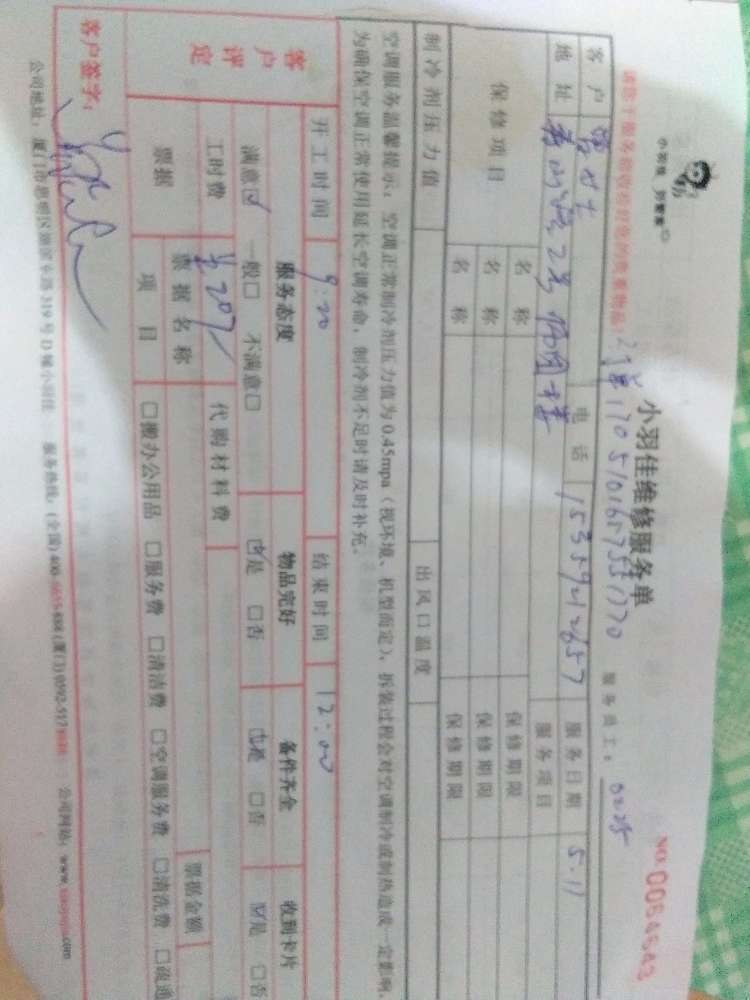 小羽佳 到家家
小羽佳维修服务单
NO. 0054543
请您于服务前收检好您的贵重物品!
服务员工: 0025
客户 电话 15359212657 服务日期 5.11
地址 2号 服务项目
保修项目 名称 保修期限
名称 保修期限
名称 保修期限
制冷剂压力值 出风口温度
空调服务温馨提示: 空调正常制冷剂压力值为 0.45mpa (视环境、机型而定)、拆装过程会对空调制冷或制热造成一定影响,
为确保空调正常使用延长空调寿命, 制冷剂不足时请及时补充。
开工时间 9:20 结束时间 12:00
客户评定 服务态度 物品完好 备件齐全 收到卡片
满意☑ 一般□ 不满意□ ☑是 □否 ☑是 □否 ☑是 □否
工时费 ¥207 代购材料费
票据 票据名称 票据金额
项目 □搬办公用品 □服务费 □清洁费 □空调服务费 □清洗费 □疏通
客户签字:
公司地址: 厦门市思明区湖滨东路 319 号 D 幢小羽佳 服务热线: (全国) 400 (厦门) 0592-517 公司网站: www. .com